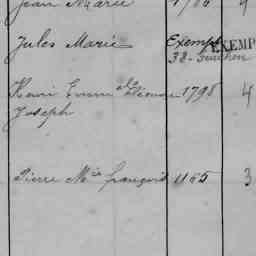 Jean Marie 1786 4
Jules Marie Exempt EXEMP
38-
Henri Emm el Eléonore 1798 4
Joseph
Pierre M ie François 1165 3